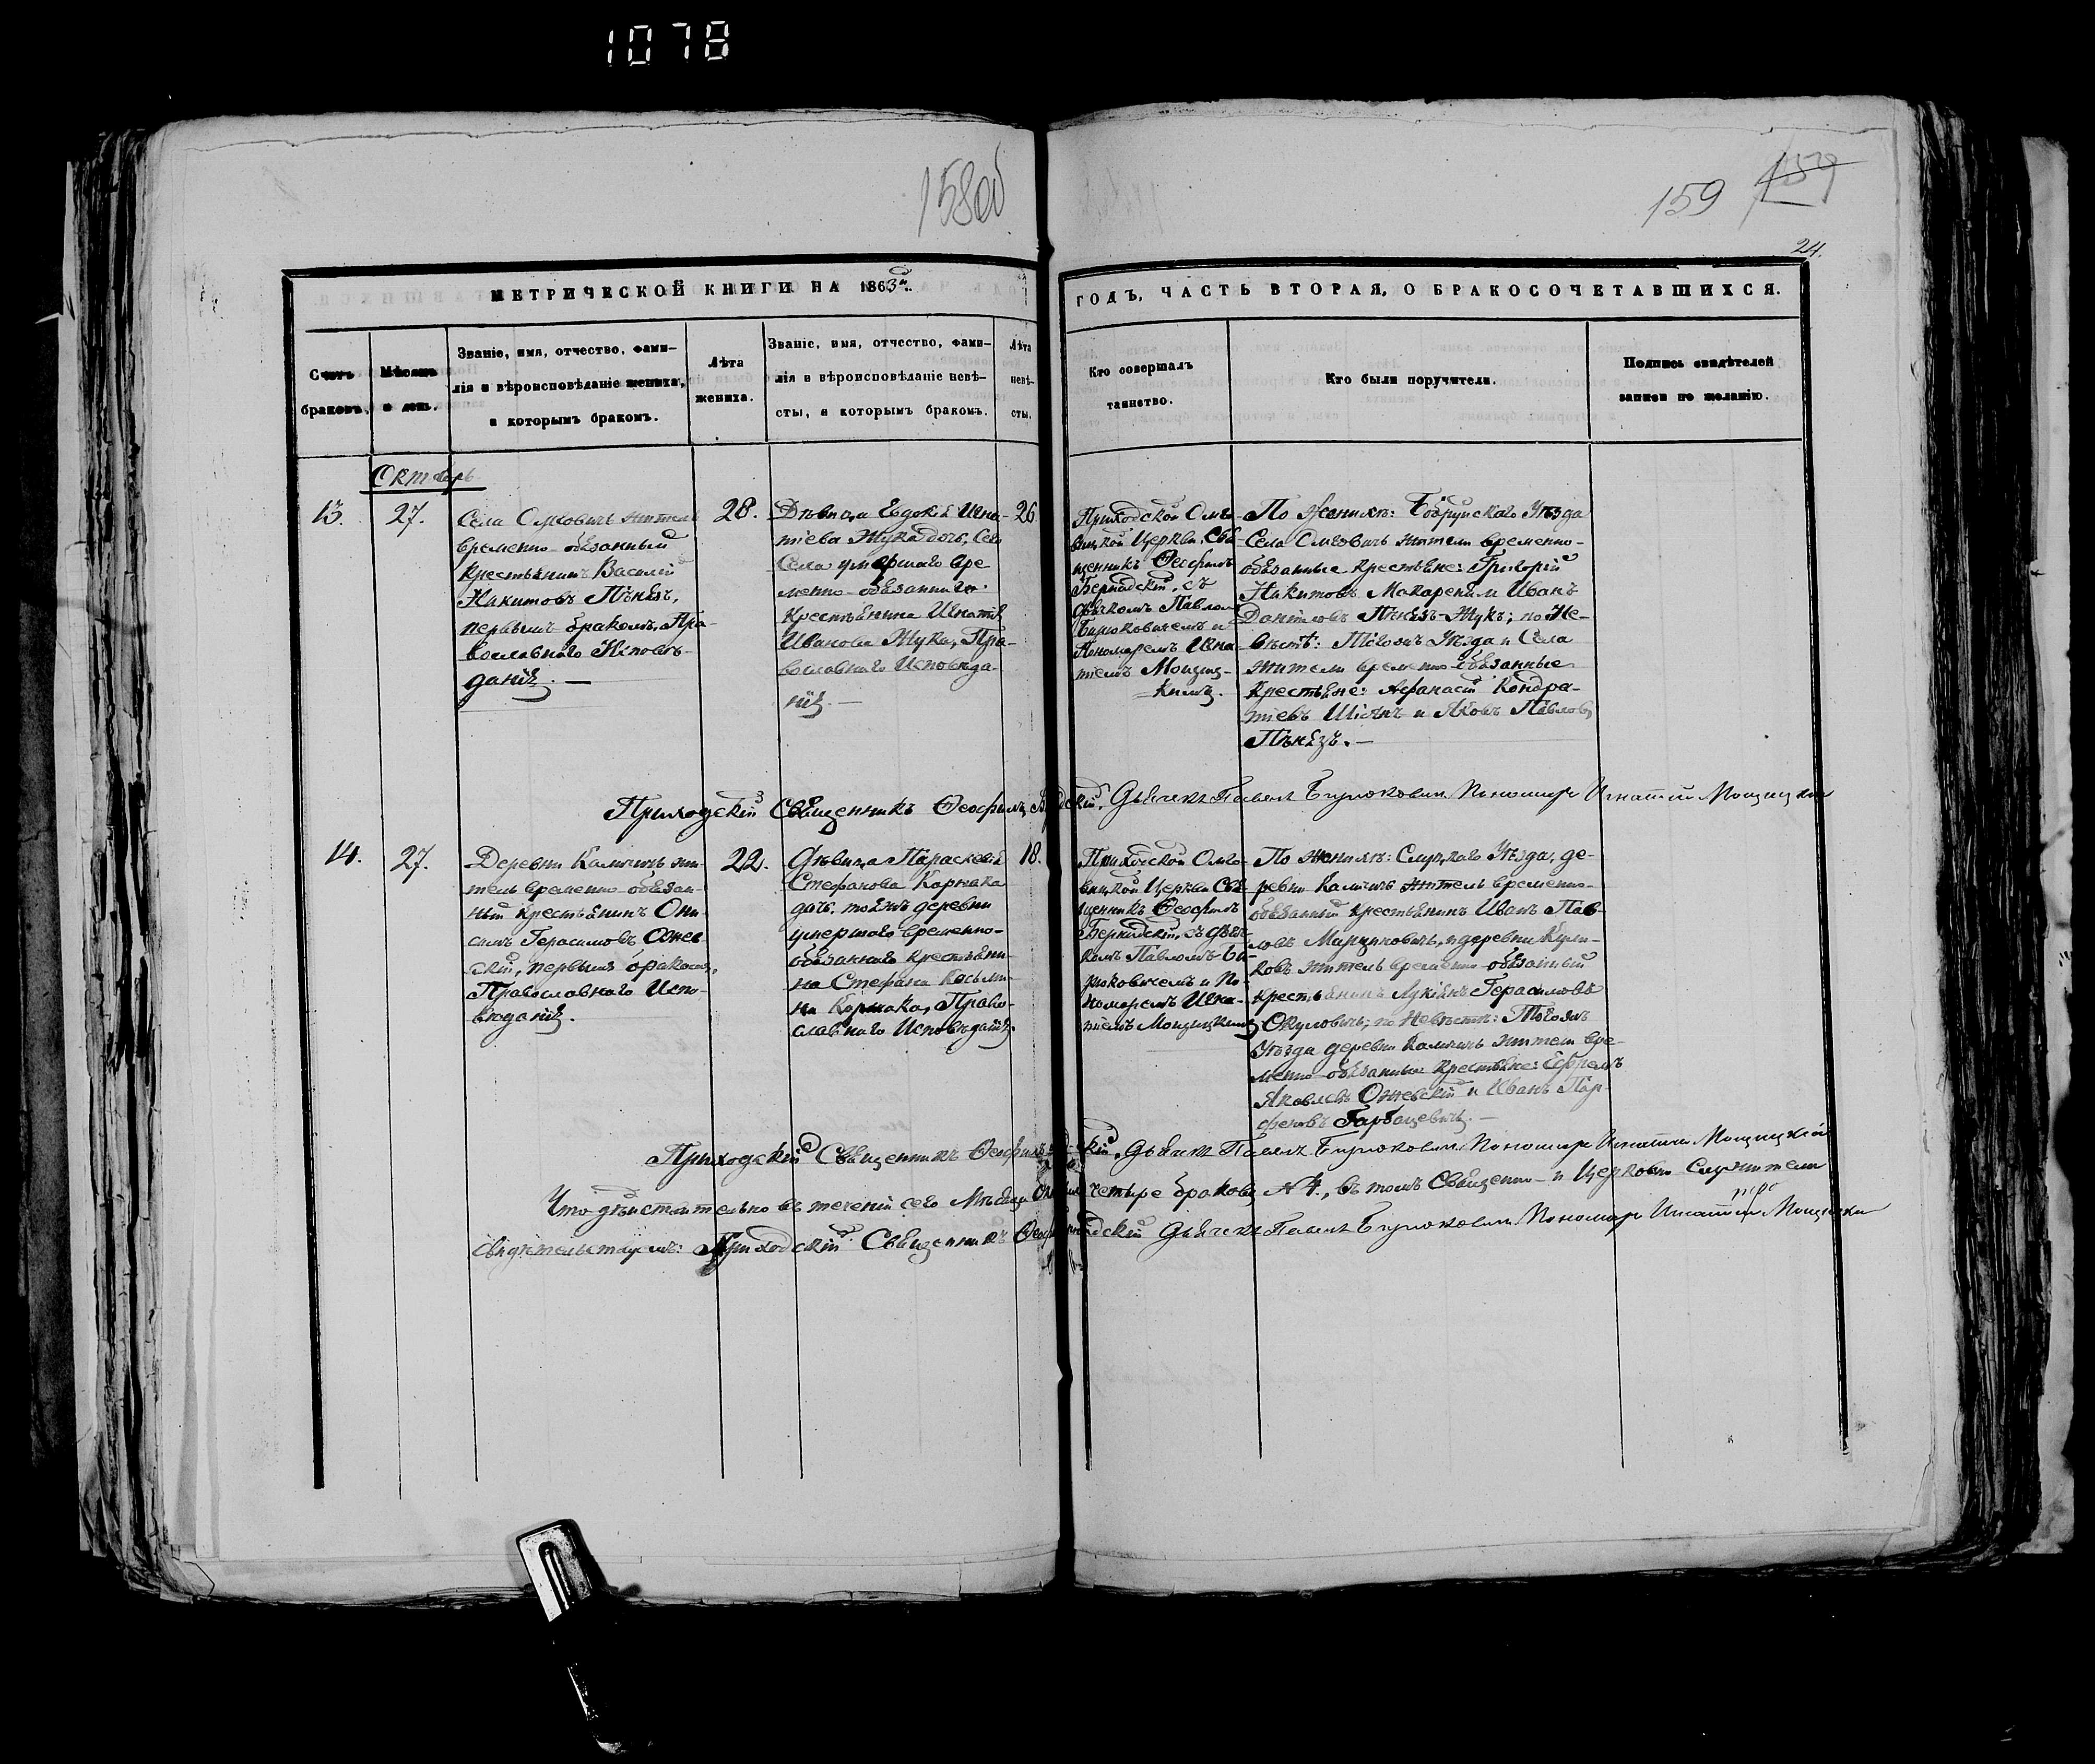 1078
158об
159
159
24.
МЕТРИЧЕСКОЙ КНИГИ НА 1863й.
ГОДЪ, ЧАСТЬ ВТОРАЯ, О БРАКОСОЧЕТАВШИХСЯ.
Счетъ
браковъ.
Мѣсяцъ
и день.
Званіе, имя, отчество, фами-
лія и вѣроисповѣданіе жениха,
и которымъ бракомъ.
Лѣта
жениха.
Званіе, имя, отчество, фами-
лія и вѣроисповѣданіе невѣ-
сты, и которымъ бракомъ.
Лѣта
невѣ-
сты.
Кто совершалъ
таинство.
Кто были поручители.
Подпись свидѣтелей
записи по желанію.
Октябрь
13.
27.
Села Омговичъ житель
временно-обязанный
крестьянинъ Василій
Никитовъ Пѣнязь,
первымъ бракомъ, Пра-
вославнаго Исповѣ-
данія. —
28.
Дѣвица Евдокія Игна-
тіева Жука дочь,
Села умершаго вре
менно-обязаннаго
крестьянина Игнатія
Иванова Жука, Пра-
вославнаго Исповѣда-
нія. —
26.
Приходской Омго-
вицкой Церкви Свя-
щенникъ Ѳеофилъ
съ
дьячкомъ Павломъ
Бирюковичемъ и
Пономаремъ Игна-
тіемъ Мощиц-
кимъ.
По Женихѣ: Бобруйскаго Уѣзда
Села Омговичъ жители временно-
обязанные крестьяне: Григорій
Никитовъ Макареня и Иванъ
Даніиловъ Пѣнязь-Жукъ; по Не-
вѣстѣ: Тогожъ Уѣзда и Села
жители временно-обязанные
крестьяне: Аѳанасій Кондра-
тіевъ и Яковъ Павловъ
Пѣнязь. —
Приходскій Священникъ Ѳеофилъ Дьячекъ Павелъ Бирюковичъ Пономарь Игнатій Мощицкій
14.
27.
Деревни Калчичъ жи-
тель временно-обязан-
ный крестьянинъ Они-
симъ Герасимовъ Ожев
скій, первымъ бракомъ,
Православнаго Испо-
вѣданія.
22.
Дѣвица Параскевія
Стефанова Коржака
дочь, тояжъ деревни
умершаго временно-
обязаннаго крестьяни-
на Стефана Косьми-
на Коржака, Право-
славнаго Исповѣданія.
18.
Приходской Омго-
вицкой Церкви Свя-
щенникъ Ѳеофилъ
съ дьяч-
комъ Павломъ Би-
рюковичемъ и По-
номаремъ Игна-
тіемъ Мощицкимъ
По женихѣ: Слуцкаго Уѣзда, де-
ревни Калчичъ житель временно-
обязанный крестьянинъ Иванъ Пав-
ловъ Марцинковичъ, и деревни
житель временно-обязанный
крестьянинъ Лукіянъ Герасимовъ
Окуловичъ; по Невѣстѣ: Тогожъ
Уѣзда деревни Калчичъ жители вре-
менно-обязанные крестьяне: Ефремъ
Яковлевъ Ожевскій и Иванъ Пар-
феновъ Гарбацевичъ. —
Приходскій Священникъ Ѳеофилъ Дьячекъ Павелъ Бирюковичъ Пономарь Игнатій Мощицкій
Что дѣйствительно въ теченіи сего Мѣсяца четыре браковъ № 4., въ томъ Священно- и Церковно Служители
свидѣтельствуемъ: Приходскій Священникъ Дьячекъ Павелъ Бирюковичъ Пономарь Игнатій Мощицкій